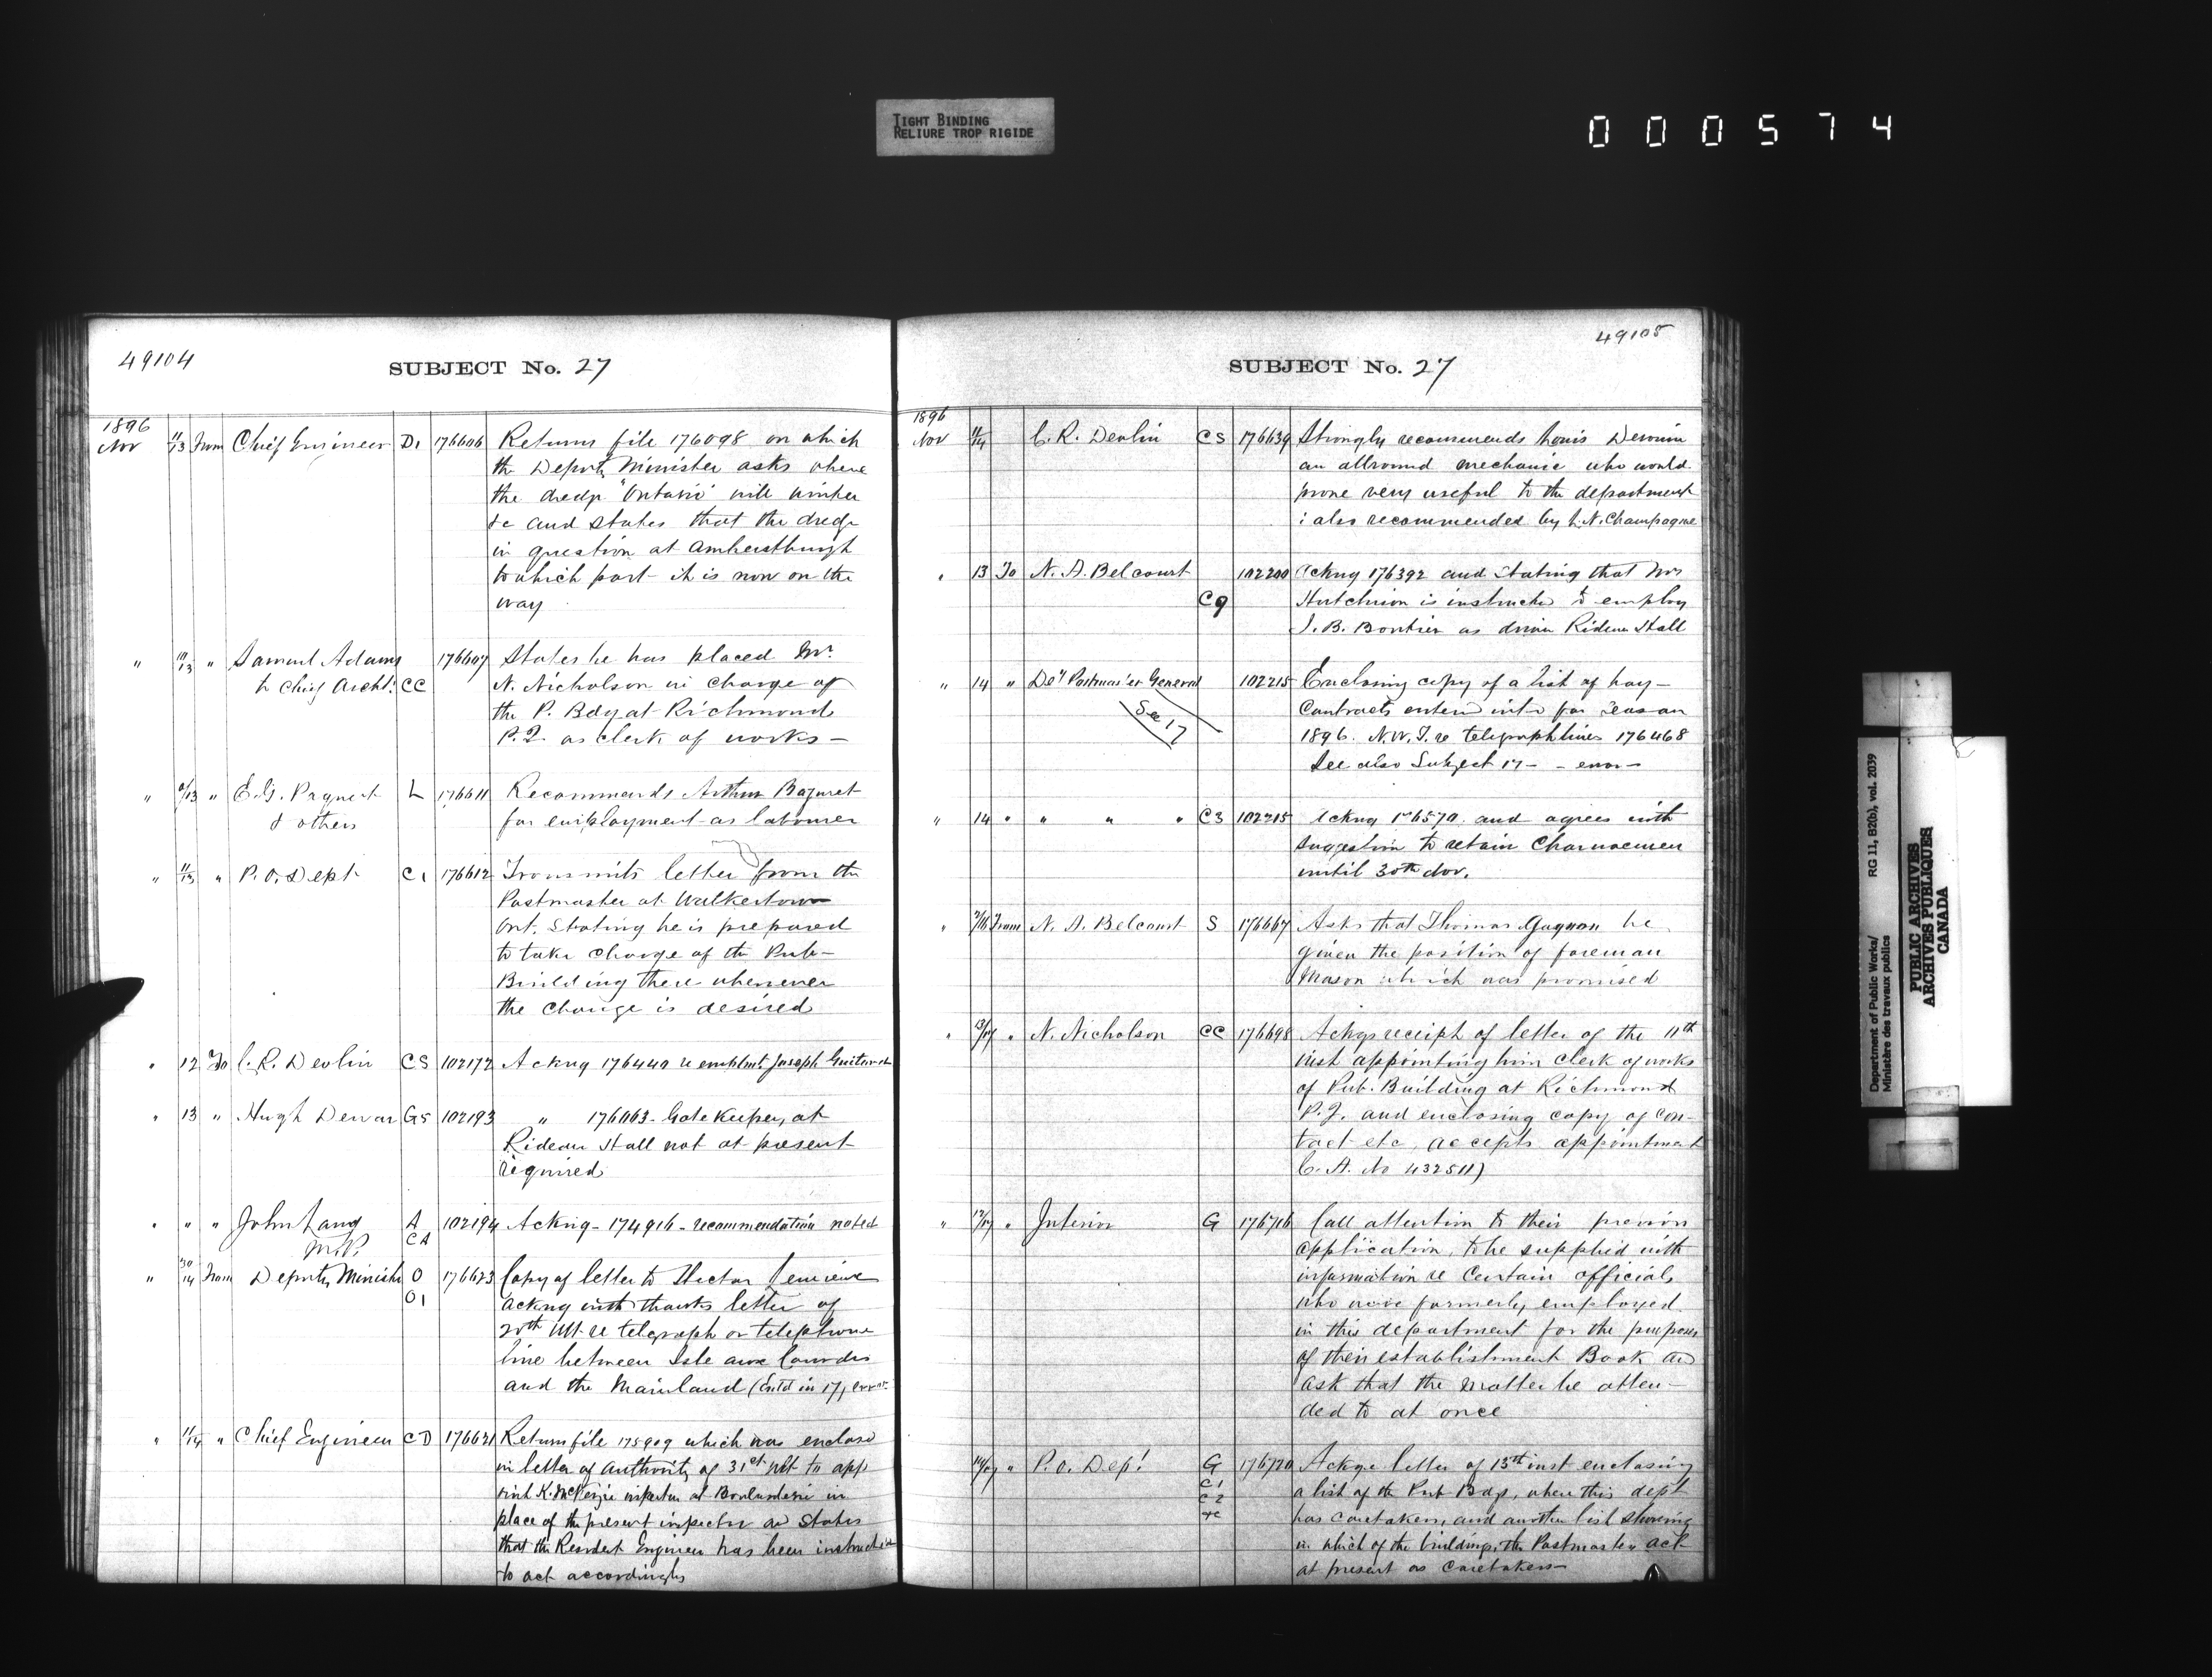 TIGHT BINDING
RELIURE TROP RIGIDE
000574
49104
SUBJECT No. 27
1896
Nov 11/13 From Chief Engineer D1 176606 Returns file 176098 on which
the Deputy Minister asks where
the dredge "Ontario" will winter
&c and states that the dredge
in question at Amherstburgh
to which port it is now on the
way
" 11/13 " Samuel Adams 176607 States he has placed Mr.
to Chief Archt. CC N. Nicholson in charge of
the P. Bdg at Richmond
P.Q. as clerk of works —
" /13 " E.G. Paquet L 176611 Recommends Arthur
& others for employment as labourer
" 11/13 " P.O. Dept C1 176612 Transmits letter from the
Postmaster at Walkertown
Ont. Stating he is prepared
to take charge of the Pub—
Building there whenever
the change is desired
" 12 To C.R. Devlin CS 102172 Ackng 176440 re emplmt. Joseph
" 13 " Hugh Dewar G5 102193 " 176063 - Gate Keeper, at
Rideau Hall not at present
required
" " " John Lang A 102194 Acking - 174916 - recommendation noted
M.P. CA
" 30/14 From Deputy Minister O 176623 Copy of letter to Hector
O1 ackng with thanks letter of
20th ult. re telegraph or telephone
line between Isle aux Coudres
and the Mainland (Entd in 17, error
" 11/14 " Chief Engineer CD 176621 Return file 175909 which was enclosed
in letter of authority of 31st ult to app
oint K. McKenzie inspector at in
place of the present inspector and states
that the Resident Engineer has been instructed
to act accordingly
49105
SUBJECT No. 27
1896
Nov 11/14 C.R. Devlin CS 176639 Strongly recommends Louis
an allround mechanic who would
prove very useful to the department
: also recommended by L.N. Champagne
" 13 To N.A. Belcourt 102200 Ackng 176392 and stating that Mr
C9 Hutchison is instructed to employ
J.B. as Rideau Hall
" 14 " Dey Postmaster General 102215 Enclosing copy of a list of hay—
See 17 Contracts entered into for season
1896. N.W.T. re telegraph lines 176468
See also Subject 17 — - error —
" 14 " " " " C3 102215 Ackng 176570. and agrees with
suggestion to retain Charwomen
until 30th Nov.
" /16 From N.A. Belcourt S 176667 Asks that Thomas Gagnon be
given the position of foreman
Mason which was promised
" 13/17 " N. Nicholson CC 176698 Ackgs receipt of letter of the 11th
inst appointing him clerk of works
of Pub. Building at Richmond
P.Q. and enclosing copy of con-
tract etc, accepts appointment
C.A. No 432511)
" /17 " Interior G 176716 Call attention to their previous
application, to be supplied with
information re certain officials
who were formerly employed
in this department for the purposes
of their establishment Book and
ask that the matter be atten—
ded to at once
14/17 " P.O. Dept G 176720 Ackge letter of 13th inst enclosing
C1 a list of the Pub Bdgs, where this dept
C2 has caretakers, and another list showing
&c in which of the buildings, the Postmasters act
at present as caretakers —
Department of Public Works/ RG 11, B2(b), vol. 2039
Ministère des travaux publics
PUBLIC ARCHIVES
ARCHIVES PUBLIQUES
CANADA